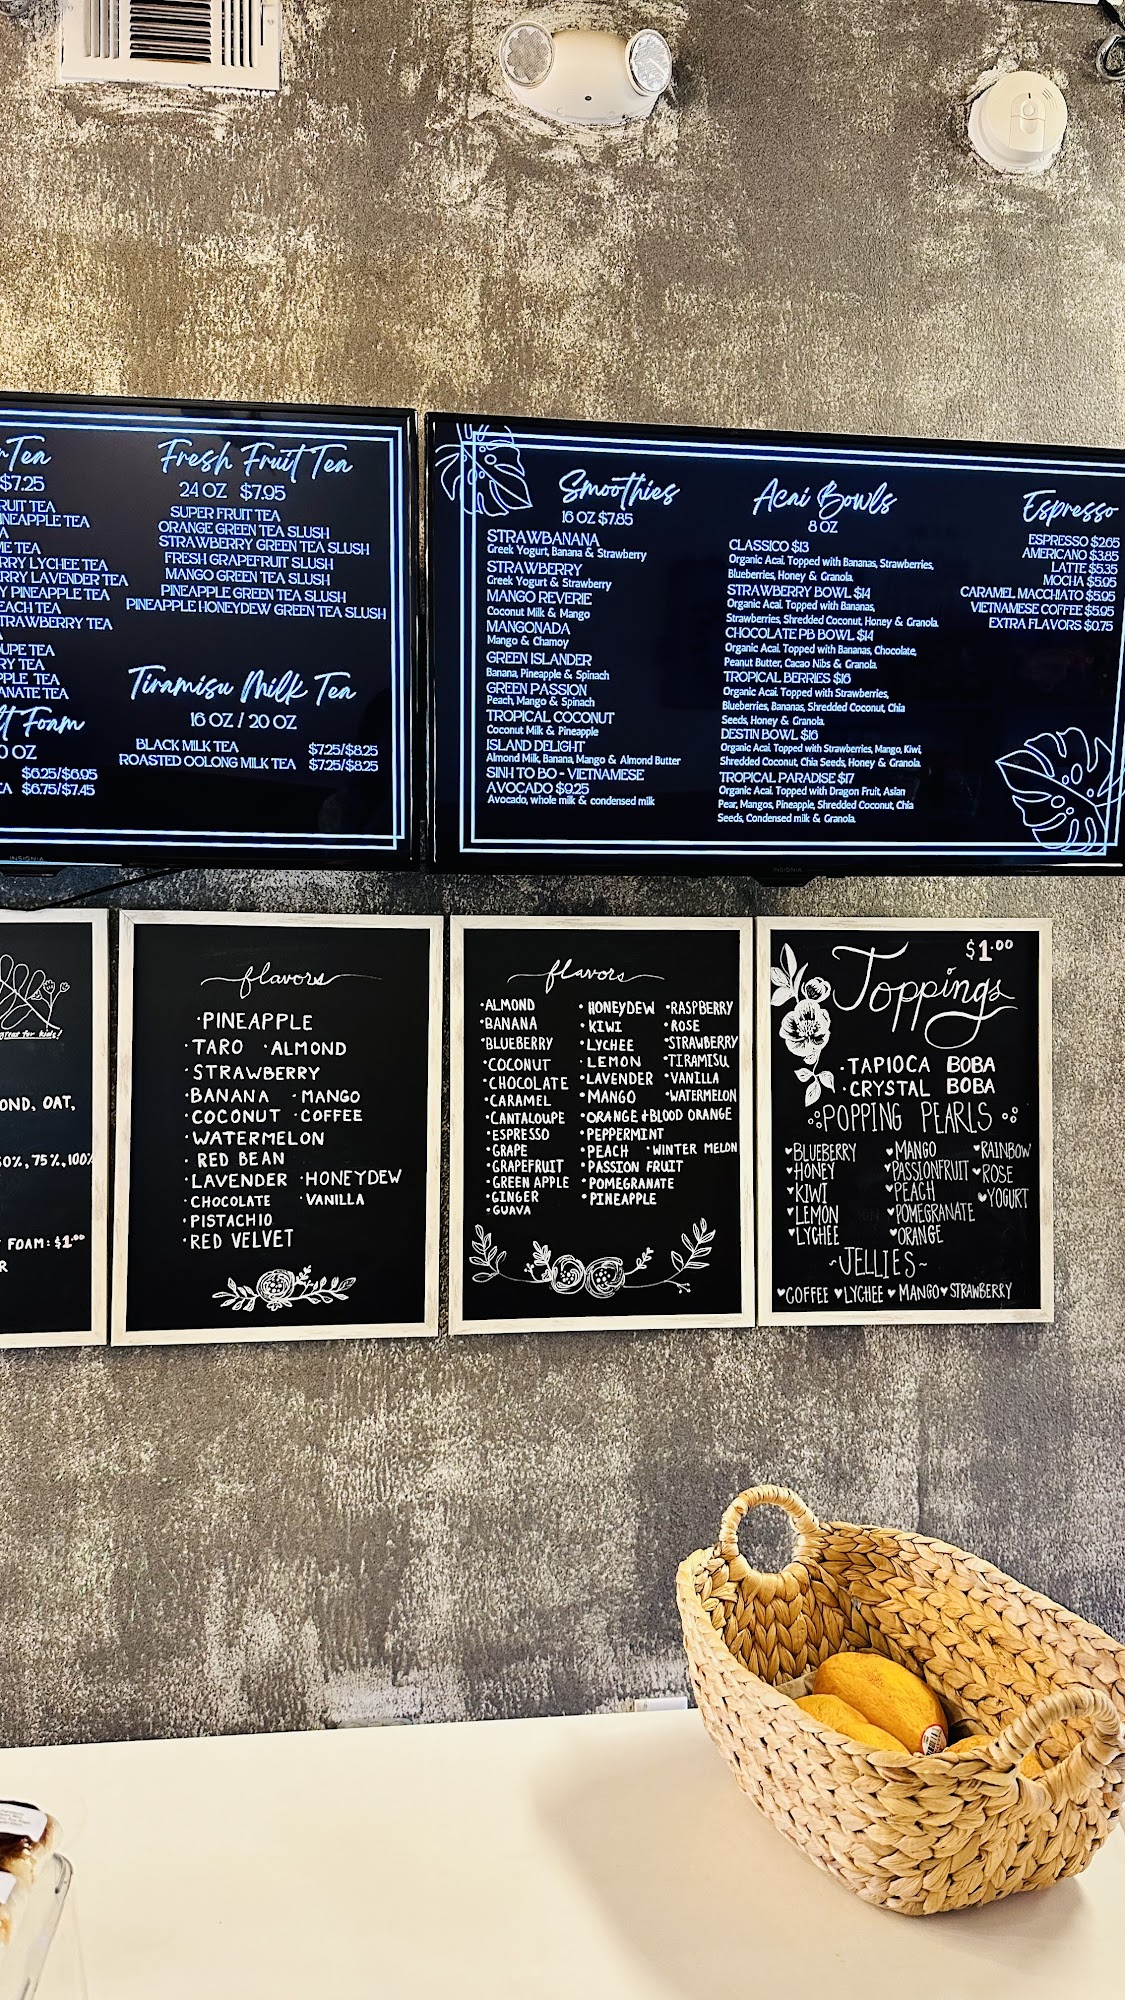 Tea
$7.25
RUIT TEA
INEAPPLE TEA
ME TEA
RRY LYCHEE TEA
RRY LAVENDER TEA
Y PINEAPPLE TEA
EACH TEA
TRAWBERRY TEA
UPE TEA
RY TEA
PPLE TEA
ANATE TEA
Foam
0 OZ
$6.25/$6.95
EA $6.75/$7.45
Fresh Fruit Tea
24 OZ $7.95
SUPER FRUIT TEA
ORANGE GREEN TEA SLUSH
STRAWBERRY GREEN TEA SLUSH
FRESH GRAPEFRUIT SLUSH
MANGO GREEN TEA SLUSH
PINEAPPLE GREEN TEA SLUSH
PINEAPPLE HONEYDEW GREEN TEA SLUSH
Tiramisu Milk Tea
16 OZ / 20 OZ
BLACK MILK TEA $7.25/$8.25
ROASTED OOLONG MILK TEA $7.25/$8.25
INSIGNIA
Smoothies
16 OZ $7.85
STRAWBANANA
Greek Yogurt, Banana & Strawberry
STRAWBERRY
Greek Yogurt & Strawberry
MANGO REVERIE
Coconut Milk & Mango
MANGONADA
Mango & Chamoy
GREEN ISLANDER
Banana, Pineapple & Spinach
GREEN PASSION
Peach, Mango & Spinach
TROPICAL COCONUT
Coconut Milk & Pineapple
ISLAND DELIGHT
Almond Milk, Banana, Mango & Almond Butter
SINH TO BO - VIETNAMESE
AVOCADO $9.25
Avocado, whole milk & condensed milk
Acai Bowls
8 OZ
CLASSICO $13
Organic Acai. Topped with Bananas, Strawberries,
Blueberries, Honey & Granola.
STRAWBERRY BOWL $14
Organic Acai. Topped with Bananas,
Strawberries, Shredded Coconut, Honey & Granola.
CHOCOLATE PB BOWL $14
Organic Acai. Topped with Bananas, Chocolate,
Peanut Butter, Cacao Nibs & Granola.
TROPICAL BERRIES $16
Organic Acai. Topped with Strawberries,
Blueberries, Bananas, Shredded Coconut, Chia
Seeds, Honey & Granola.
DESTIN BOWL $16
Organic Acai. Topped with Strawberries, Mango, Kiwi,
Shredded Coconut, Chia Seeds, Honey & Granola.
TROPICAL PARADISE $17
Organic Acai. Topped with Dragon Fruit, Asian
Pear, Mangos, Pineapple, Shredded Coconut, Chia
Seeds, Condensed milk & Granola.
Espresso
ESPRESSO $2.65
AMERICANO $3.85
LATTE $5.35
MOCHA $5.95
CARAMEL MACCHIATO $5.95
VIETNAMESE COFFEE $5.95
EXTRA FLAVORS $0.75
INSIGNIA
great for kids!
OND, OAT,
50%, 75%, 100%
FOAM: $1.00
R
flavors
·PINEAPPLE
·TARO ·ALMOND
·STRAWBERRY
·BANANA ·MANGO
·COCONUT ·COFFEE
·WATERMELON
·RED BEAN
·LAVENDER ·HONEYDEW
·CHOCOLATE ·VANILLA
·PISTACHIO
·RED VELVET
flavors
·ALMOND
·BANANA
·BLUEBERRY
·COCONUT
·CHOCOLATE
·CARAMEL
·CANTALOUPE
·ESPRESSO
·GRAPE
·GRAPEFRUIT
·GREEN APPLE
·GINGER
·GUAVA
·HONEYDEW
·KIWI
·LYCHEE
·LEMON
·LAVENDER
·MANGO
·ORANGE + BLOOD ORANGE
·PEPPERMINT
·PEACH ·WINTER MELON
·PASSION FRUIT
·POMEGRANATE
·PINEAPPLE
·RASPBERRY
·ROSE
·STRAWBERRY
·TIRAMISU
·VANILLA
·WATERMELON
$1.00
Toppings
·TAPIOCA BOBA
·CRYSTAL BOBA
POPPING PEARLS
♥BLUEBERRY ♥MANGO ♥RAINBOW
♥HONEY ♥PASSIONFRUIT ♥ROSE
♥KIWI ♥PEACH ♥YOGURT
♥LEMON ♥POMEGRANATE
♥LYCHEE ♥ORANGE
~JELLIES~
♥COFFEE ♥LYCHEE ♥MANGO ♥STRAWBERRY